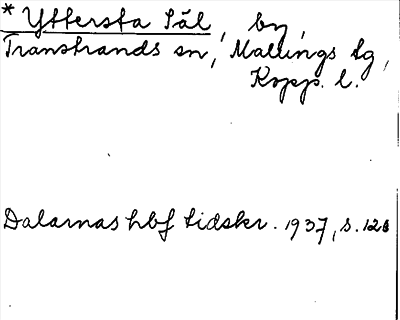 * Yttersta Säl, by,
Transtrands sn, Malungs tg,
Kopp. l.
Dalarnas hbf tidskr. 1937, s. 128